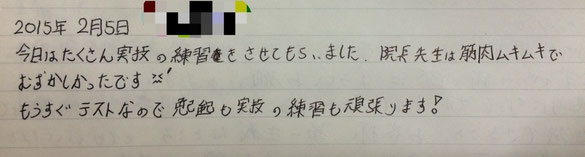 2015年 2月5日
今日はたくさん実技の練習をさせてもらいました。院長先生は筋肉ムキムキで
むずかしかったです
もうすぐテストなので勉強も実技の練習も頑張ります!